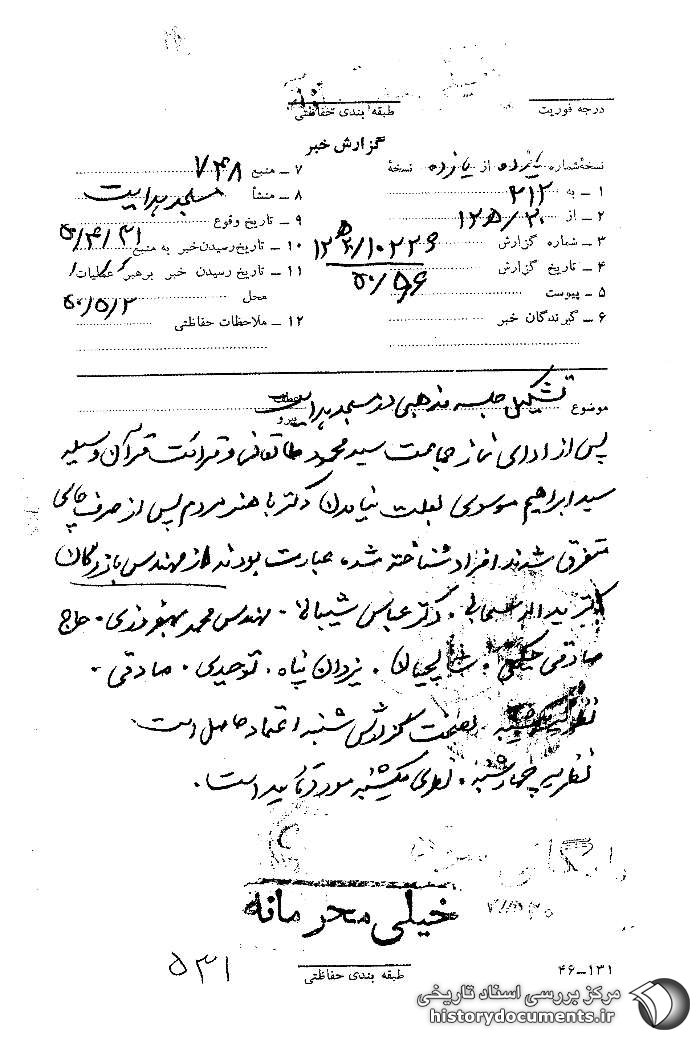 درجه فوریت
طبقه بندی حفاظتی
گزارش خبر
نسخهٔ شماره یازده از یازده نسخهٔ
۱ ـ به ۲۱۲
۲ ـ از ۲۰ / ۱۲۵
۳ ـ شماره گزارش ۱۰۲۲۶
۴ ـ تاریخ گزارش
۵ ـ پیوست
۶ ـ گیرندگان خبر
۷ ـ منبع ۷۴۸
۸ ـ منشأ مسجد هدایت
۹ ـ تاریخ وقوع
۱۰ ـ تاریخ رسیدن خبر به منبع ۵۰/۴/۳۱
۱۱ ـ تاریخ رسیدن خبر برهبر عملیات
محل ۵۰/۵/۲
۱۲ ـ ملاحظات حفاظتی
موضوع تشکیل جلسه مذهبی در مسجد هدایت
پس از ادای نماز جماعت سید محمود طالقانی و قرائت قرآن وسیله
سید ابراهیم موسوی بعلت نیامدن دکتر باهنر مردم پس از صرف چای
متفرق شدند افراد شناخته شده عبارت بودند از مهندس بازرگان
دکتر یداله سحابی . دکتر عباس شیبانی . مهندس محمد بهفروزی . حاج
صادقی . شالچیان . یزدان پناه . توحیدی . صادقی .
نظریه شنبه . بصحت گزارش شنبه اعتماد حاصل است
نظریه چهارشنبه . نظریه یکشنبه مورد تأیید است .
خیلی محرمانه
۵۳۱
طبقه بندی حفاظتی
۴۶-۱۳۱
مرکز بررسی اسناد تاریخی
historydocuments.ir